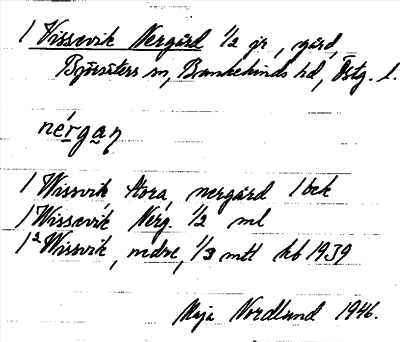 1 Vissevik Nergård 1/2 jr, gård,
Björsäters sn, Bankekinds hd, Östg. l.
nérgaɳ
1 Wissvik Stora, nergård 1 bek
1 Wissevik Nerg. 1/2 ml
1² Wissvik, nedre, 1/3 mtl kb 1939
Maja Nordlund 1946.